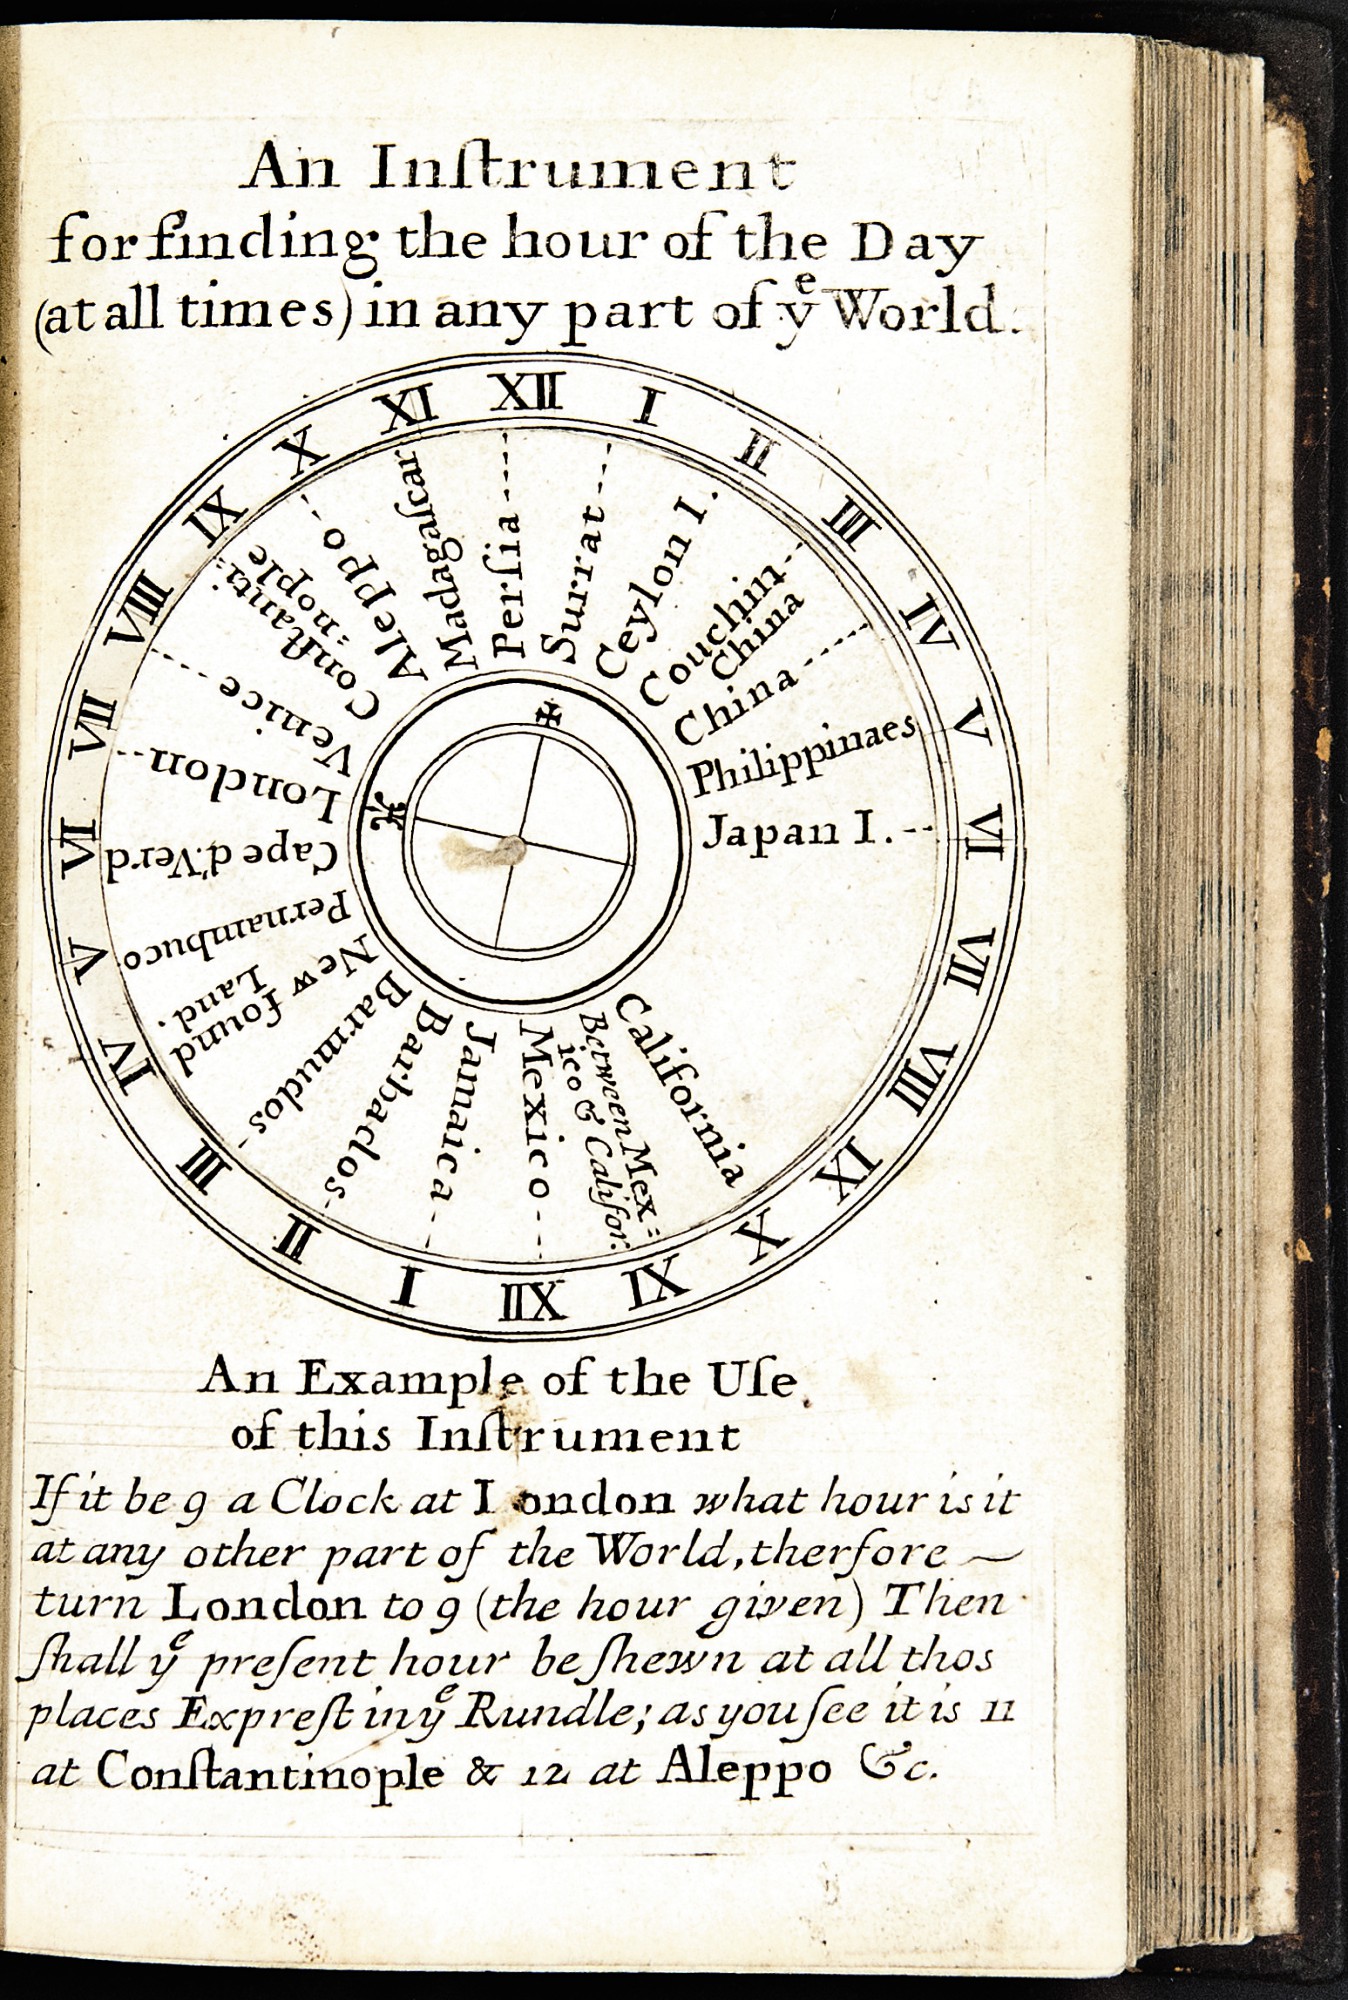 An Inſtrument
for finding the hour of the Day
(at all times) in any part of yͤ World.
XII
I
II
III
IV
V
VI
VII
VIII
IX
X
XI
XII
I
II
III
IV
V
VI
VII
VIII
IX
X
XI
Perſia
Surrat
Ceylon I.
Couchin
China
China
Philippinaes
Japan I.
California
Between Mex=
ico & Califor.
Mexico
Jamaica
Barbados
Barmudos
New found
Land.
Pernambuco
Cape d'.Verd
London
Venice
Conſtanti=
=nople
Aleppo
Madagaſcar
An Example of the Uſe
of this Inſtrument
If it be 9 a Clock at London what hour is it
at any other part of the World, therfore
turn London to 9 (the hour given) Then
ſhall yͤ preſent hour be ſhewn at all thos
places Expreſt in yͤ Rundle; as you ſee it is 11
at Conſtantinople & 12 at Aleppo &c.